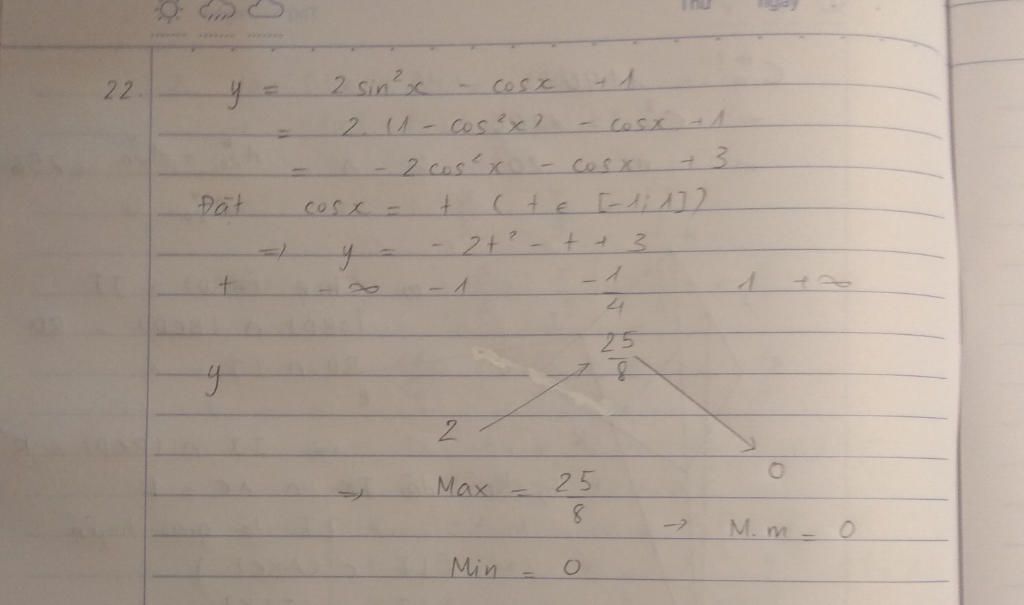 Thứ Ngày
22. y = 2 sin²x - cosx + 1
= 2. (1 - cos²x) - cosx + 1
= - 2cos²x - cosx + 3
Đặt cosx = t ( t ∈ [-1; 1])
=> y = - 2t² - t + 3
t -∞ -1 -1/4 1 +∞
y 25/8
2
0
=> Max = 25/8
→ M.m = 0
Min = 0